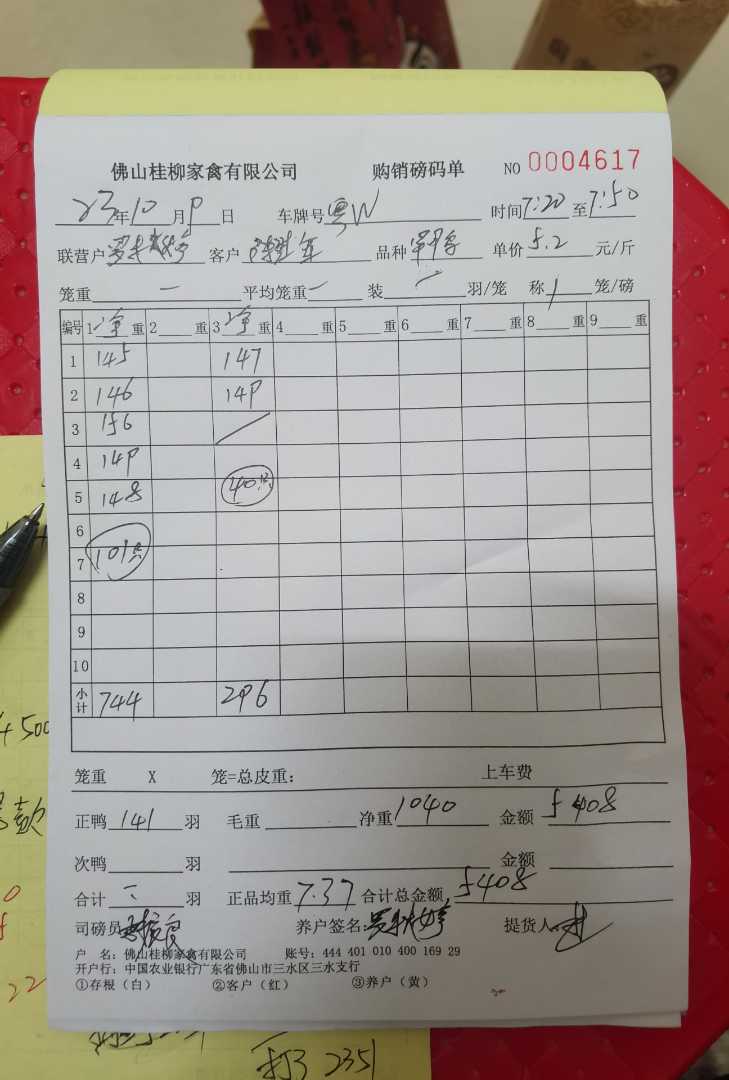 佛山桂柳家禽有限公司 购销磅码单 NO 0004617
23年10月9日 车牌号粤W 时间7:20至7:50
联营户 客户 品种 单价5.2元/斤
笼重一 平均笼重一 装一羽/笼 称1笼/磅
编号 1净重 2重 3净重 4重 5重 6重 7重 8重 9重
1 145 147
2 146 149
3 156
4 149
5 148 40只
6
7 101只
8
9
10
小计 744 296
笼重 X 笼=总皮重: 上车费
正鸭141羽 毛重 净重1040 金额5408
次鸭 羽 金额
合计 羽 正品均重7.37 合计总金额5408
司磅员 养户签名 提货人
户 名: 佛山桂柳家禽有限公司 账号: 444 401 010 400 169 29
开户行: 中国农业银行广东省佛山市三水区三水支行
①存根(白) ②客户(红) ③养户(黄)
500
款
22
打3 2351